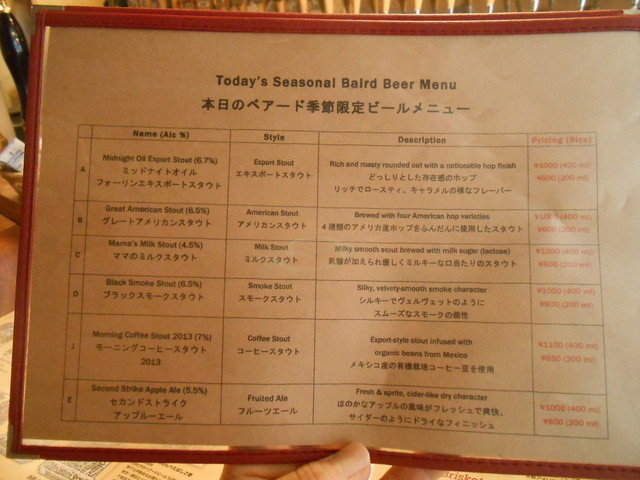 Today's Seasonal Baird Beer Menu
本日のベアード季節限定ビールメニュー
Name (Alc %) Style Description Pricing (Size)
A
Midnight Oil Export Stout (6.7%)
ミッドナイトオイル
フォーリンエキスポートスタウト
Export Stout
エキスポートスタウト
Rich and roasty rounded out with a noticeable hop finish
どっしりとした存在感のホップ
リッチでロースティ、キャラメルの様なフレーバー
¥1000 (400 ml)
¥600 (200 ml)
B
Great American Stout (6.5%)
グレートアメリカンスタウト
American Stout
アメリカンスタウト
Brewed with four American hop varieties
4種類のアメリカ産ホップをふんだんに使用したスタウト
¥1000 (400 ml)
¥600 (200 ml)
C
Mama's Milk Stout (4.5%)
ママのミルクスタウト
Milk Stout
ミルクスタウト
Milky smooth stout brewed with milk sugar (lactose)
乳糖が加えられ優しくミルキーな口当たりのスタウト
¥1000 (400 ml)
¥600 (200 ml)
D
Black Smoke Stout (6.5%)
ブラックスモークスタウト
Smoke Stout
スモークスタウト
Silky, velvety-smooth smoke character
シルキーでヴェルヴェットのように
スムーズなスモークの個性
¥1000 (400 ml)
¥600 (200 ml)
J
Morning Coffee Stout 2013 (7%)
モーニングコーヒースタウト
2013
Coffee Stout
コーヒースタウト
Export-style stout infused with
organic beans from Mexico
メキシコ産の有機栽培コーヒー豆を使用
¥1100 (400 ml)
¥650 (200 ml)
E
Second Strike Apple Ale (5.5%)
セカンドストライク
アップルエール
Fruited Ale
フルーツエール
Fresh & sprite, cider-like dry character
ほのかなアップルの風味がフレッシュで爽快、
サイダーのようにドライなフィニッシュ
¥1000 (400 ml)
¥600 (200 ml)